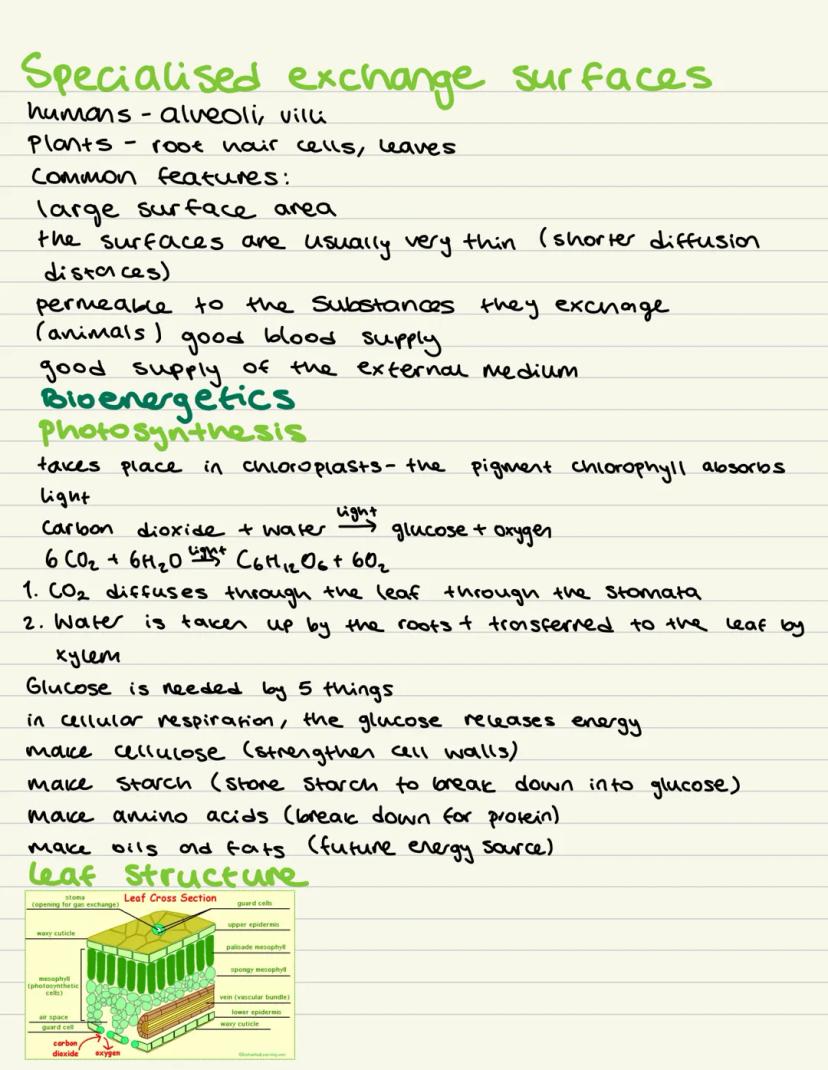 Specialised exchange surfaces
humans - alveoli, villi
Plants - root hair cells, leaves
Common features:
large surface area
the surfaces are usually very thin (shorter diffusion
distances)
permeable to the substances they exchage
(animals) good blood supply
good supply of the external medium
Bioenergetics
Photosynthesis
takes place in chloroplasts - the pigment chlorophyll absorbs
light
Carbon dioxide + water light→ glucose + oxygen
6 CO₂ + 6H₂O light→ C₆H₁₂O₆ + 6O₂
1. CO₂ diffuses through the leaf through the stomata
2. Water is taken up by the roots + transferred to the leaf by
xylem
Glucose is needed by 5 things
in cellular respiration, the glucose releases energy
make cellulose (strengthen cell walls)
make starch (store starch to break down into glucose)
make amino acids (break down for protein)
make oils and fats (future energy source)
Leaf structure
Leaf Cross Section
stoma
(opening for gas exchange)
guard cells
upper epidermis
waxy cuticle
palisade mesophyll
spongy mesophyll
mesophyll
(photosynthetic
cells)
vein (vascular bundle)
air space
lower epidermis
guard cell
waxy cuticle
carbon
dioxide
oxygen
©EnchantedLearning.com